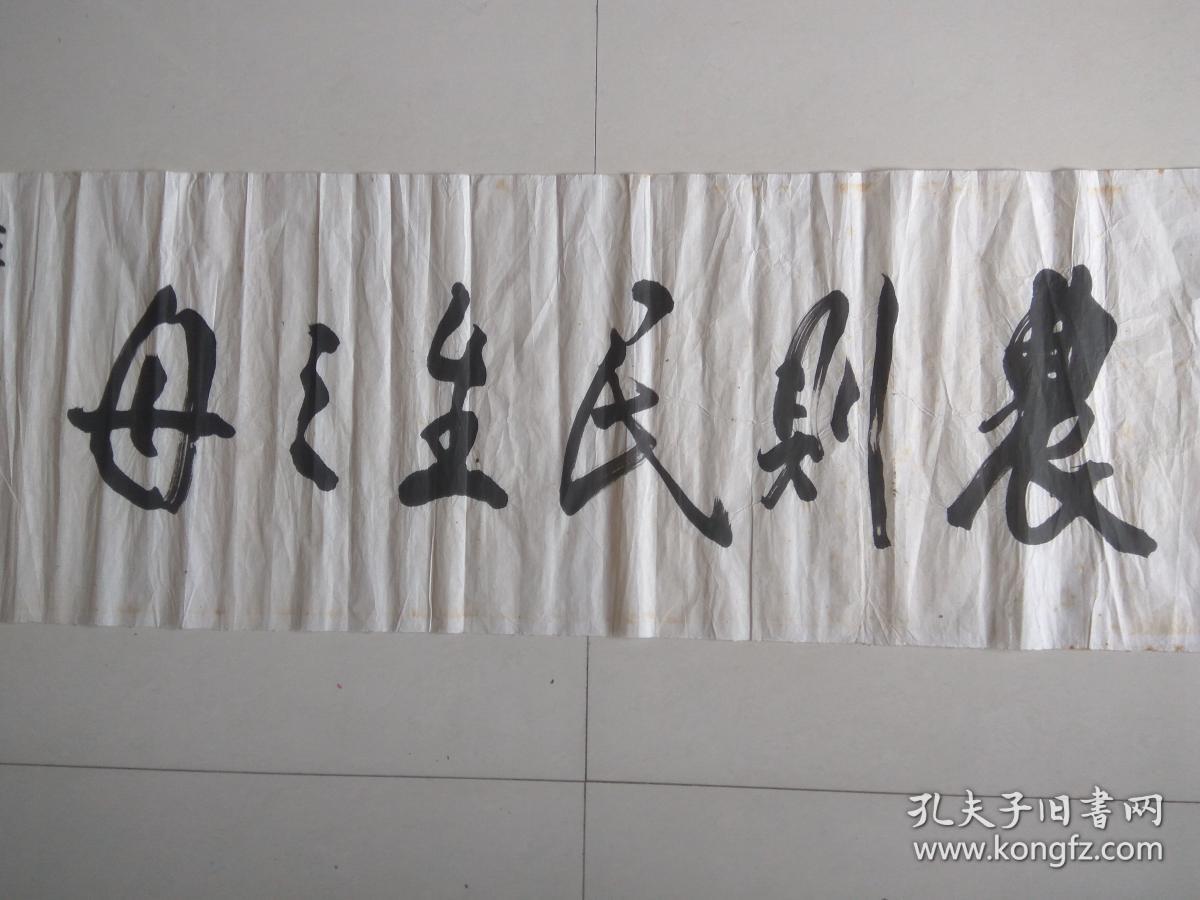 農則民生之母
孔夫子旧書网
www.kongfz.com